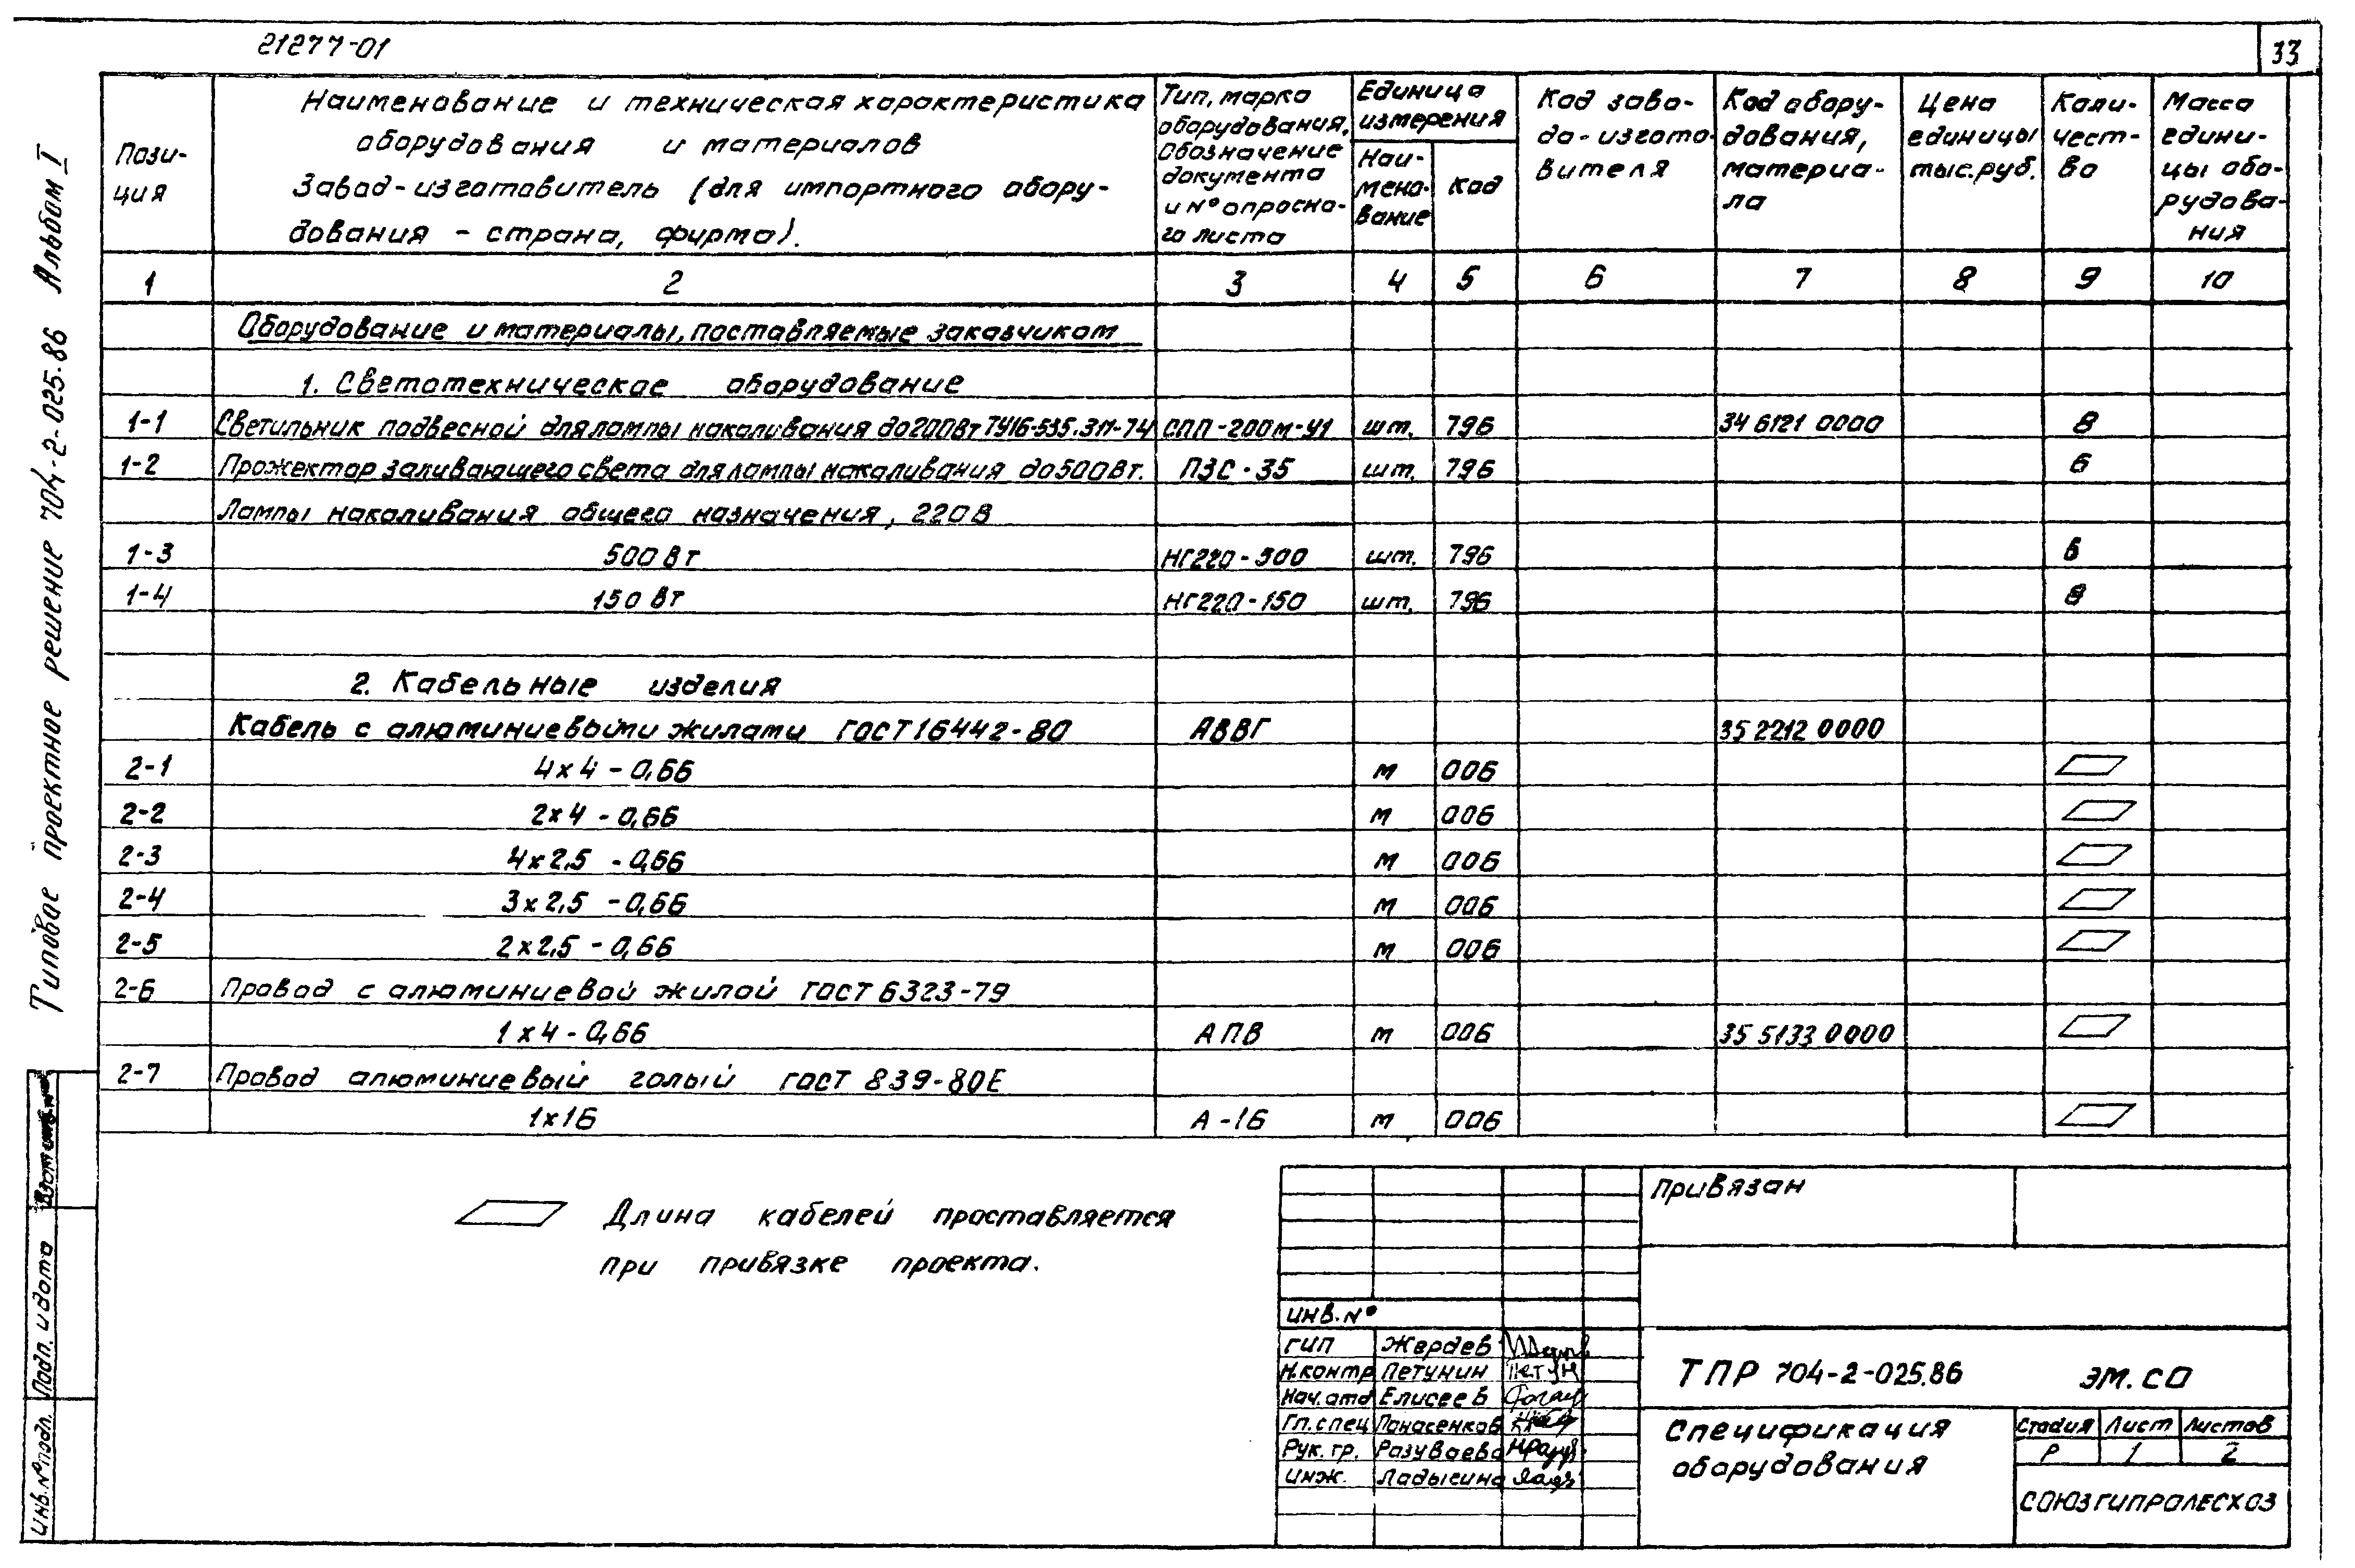 21277-01
33
Типовое проектное решение 704-2-025.86 Альбом I
Пози-
ция
Наименование и техническая характеристика
оборудования и материалов
Завод-изготовитель (для импортного обору-
дования - страна, фирма).
Тип, марка
оборудования,
Обозначение
документа
и № опросно-
го листа
Единица
измерения
Наи-
мено-
вание
Код
Код заво-
да-изгото-
вителя
Код обору-
дования,
материа-
ла
Цена
единицы
тыс.руб.
Коли-
чест-
во
Масса
едини-
цы обо-
рудова-
ния
1 2 3 4 5 6 7 8 9 10
Оборудование и материалы, поставляемые заказчиком
1. Светотехническое оборудование
1-1 Светильник подвесной для лампы накаливания до 200Вт ТУ16-535.311-74 СПП-200М-У1 шт. 796 34 6121 0000 8
1-2 Прожектор заливающего света для лампы накаливания до 500Вт. ПЗС-35 шт. 796 6
Лампы накаливания общего назначения, 220В
1-3 500 Вт НГ220-500 шт. 796 6
1-4 150 Вт НГ220-150 шт. 796 8
2. Кабельные изделия
Кабель с алюминиевыми жилами ГОСТ 16442-80 АВВГ 35 2212 0000
2-1 4х4-0,66 м 006
2-2 2х4-0,66 м 006
2-3 4х2,5-0,66 м 006
2-4 3х2,5-0,66 м 006
2-5 2х2,5-0,66 м 006
2-6 Провод с алюминиевой жилой ГОСТ 6323-79
1х4-0,66 АПВ м 006 35 5133 0000
2-7 Провод алюминиевый голый ГОСТ 839-80Е
1х16 А-16 м 006
Длина кабелей проставляется
при привязке проекта.
Привязан
инв.№
ГИП Жердев
Н.контр Петунин
Нач.отд Елисеев
Гл.спец Панасенков
Рук. гр. Разуваева
инж. Ладысина
ТПР 704-2-025.86 ЭМ.СО
Спецификация
оборудования
Стадия Лист Листов
Р 1 2
СОЮЗГИПРОЛЕСХОЗ
Инв.№ подл.
Подп. и дата